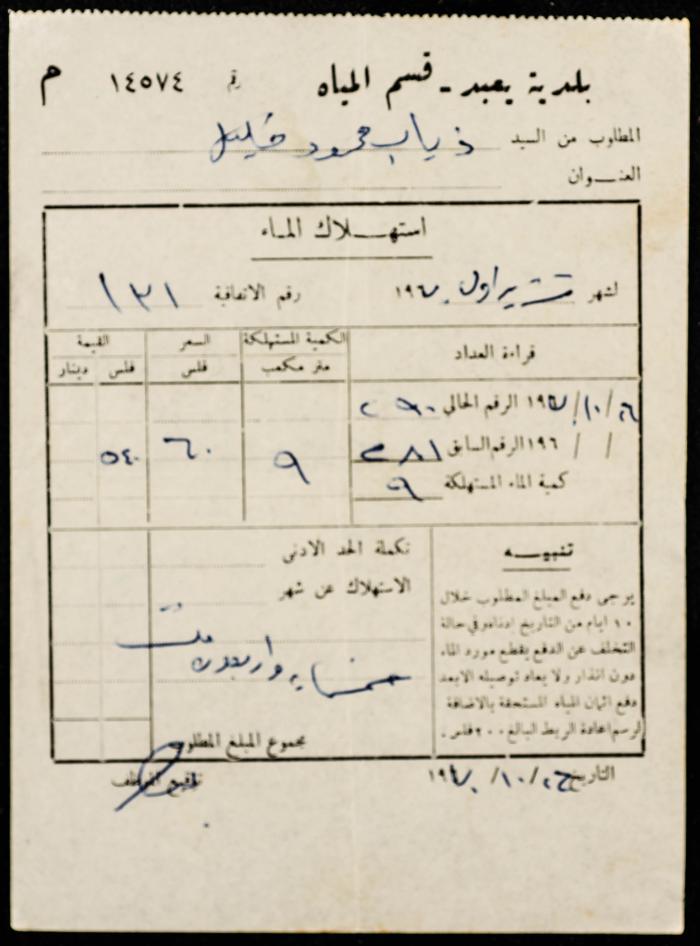 بلدية يعبد - قسم المياه رقم ١٤٥٧٤ م
المطلوب من السيد ذياب محمود خليل
العنــوان
استهــلاك المـاء
لشهر تشرين اول ١٩٧٠ رقم الاتفاقية ١٣١
قراءة العداد الكمية المستهلكة السعر القيمة
متر مكعب فلس فلس دينار
١٩٧٠/١٠/٢٦ الرقم الحالي ٢٩٠
/ / ١٩٦ الرقم السابق ٢٨١ ٩ ٦٠ ٥٤٠
كمية الماء المستهلكة ٩
تنبيــه
يرجى دفع المبلغ المطلوب خلال
١٠ ايام من التاريخ ادناه وفي حالة
التخلف عن الدفع يقطع مورد الماء
دون انذار ولا يعاد توصيله الا بعد
دفع اثمان المياه المستحقة بالاضافة
لرسم اعادة الربط البالغ ٢٠٠ فلس .
تكملة الحد الادنى
الاستهلاك عن شهر
خمسماية واربعون فلس
مجموع المبلغ المطلوب
التاريخ ١٩٧٠/١٠/٢٦ توقيع الموظف